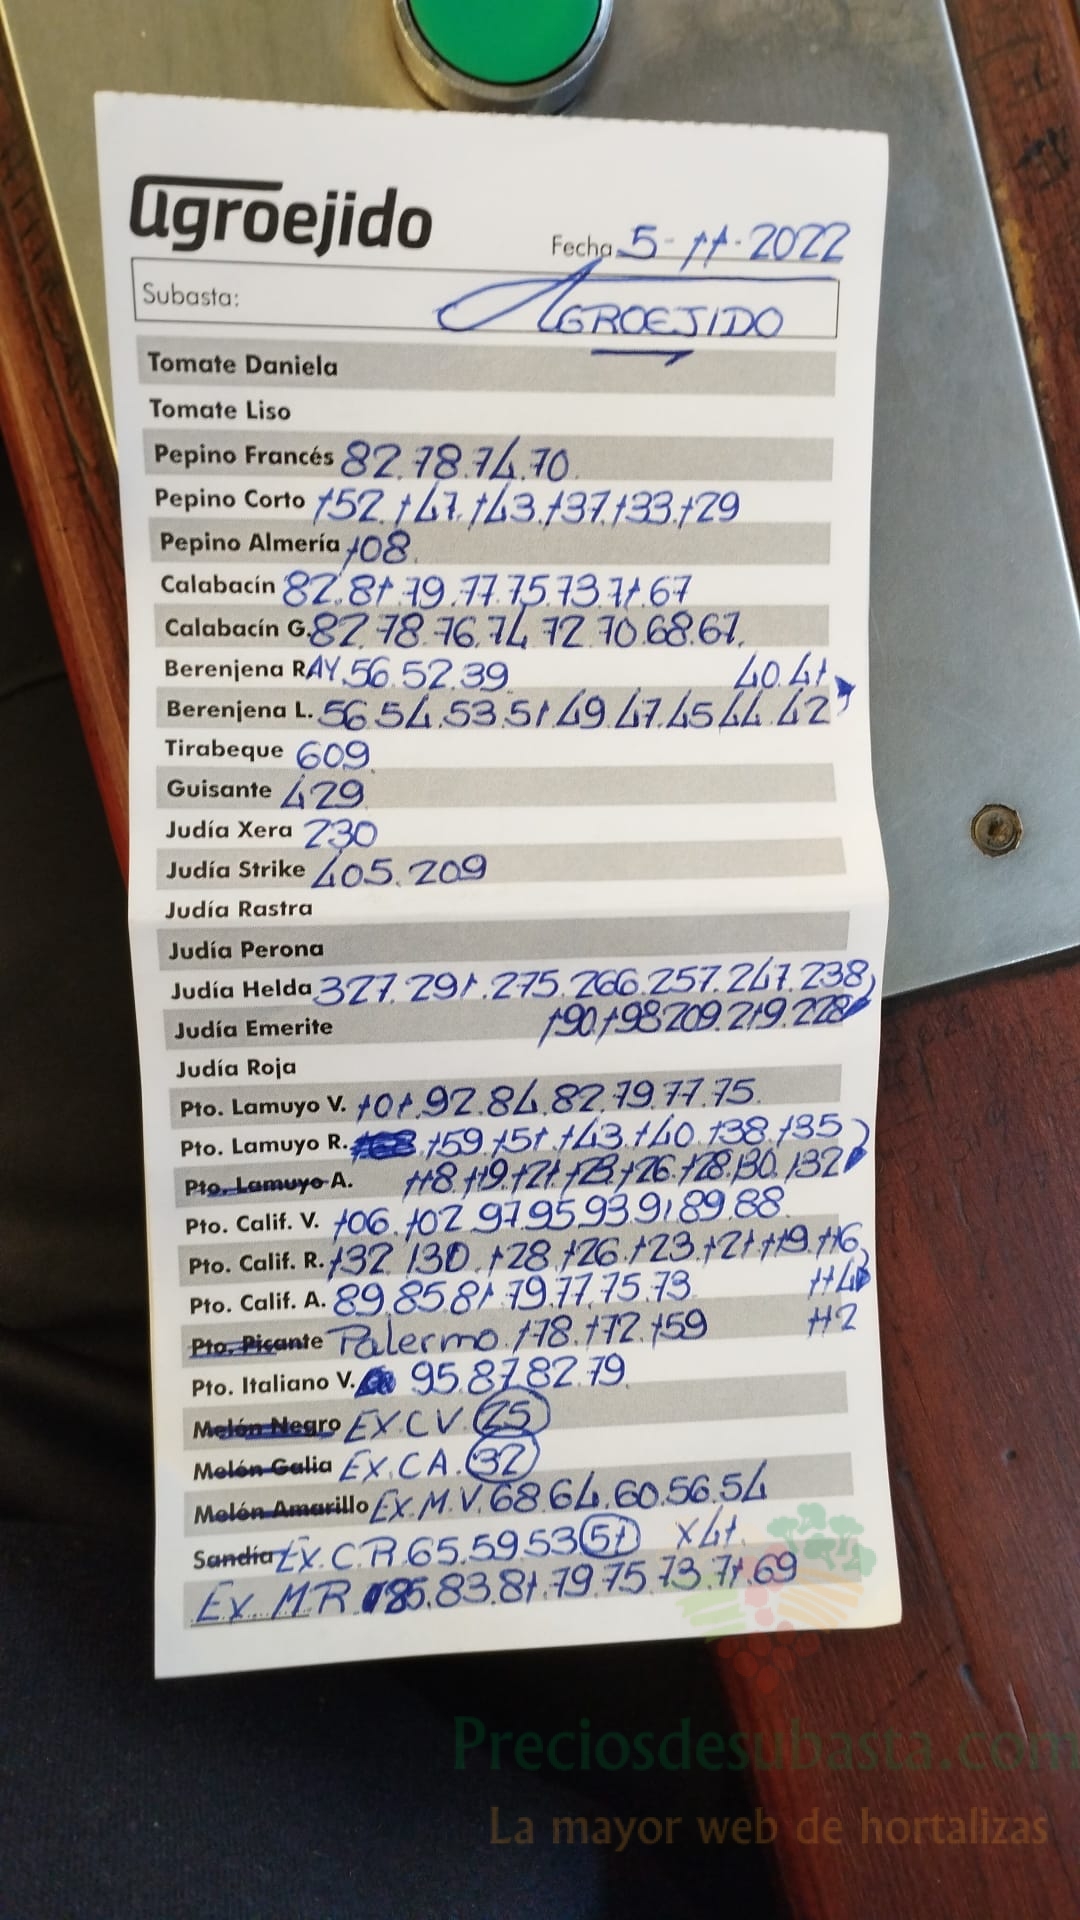 agroejido
Fecha 5-11-2022
Subasta: AGROEJIDO
Tomate Daniela
Tomate Liso
Pepino Francés 82.78.74.70.
Pepino Corto 152.147.143.137.133.129
Pepino Almería 108.
Calabacín 82.81.79.77.75.73.71.67
Calabacín G. 82.78.76.74.72.70.68.67.
Berenjena RAY.56.52.39 40.41
Berenjena L. 56.54.53.51.49.47.45.44.42
Tirabeque 609
Guisante 429
Judía Xera 230
Judía Strike 405.209
Judía Rastra
Judía Perona
Judía Helda 327.291.275.266.257.247.238
Judía Emerite 190.198.209.219.228
Judía Roja
Pto. Lamuyo V. 101.92.84.82.79.77.75.
Pto. Lamuyo R. 159.151.143.140.138.135
Pto. Lamuyo A. 118.119.121.123.126.128.130.132
Pto. Calif. V. 106.102.97.95.93.91.89.88.
Pto. Calif. R. 132.130.128.126.123.121.119.116
Pto. Calif. A. 89.85.81.79.77.75.73 114
Pto. Picante Palermo.178.172.159 112
Pto. Italiano V. 95.87.82.79.
Melón Negro EX.C V. 25
Melón Galia Ex.CA. 32
Melón Amarillo Ex.M.V.68.64.60.56.54
Sandía Ex.C.R.65.59.53 51 X41.
Ex.M.R. 85.83.81.79.75.73.71.69
Preciosdesubasta.com
La mayor web de hortalizas